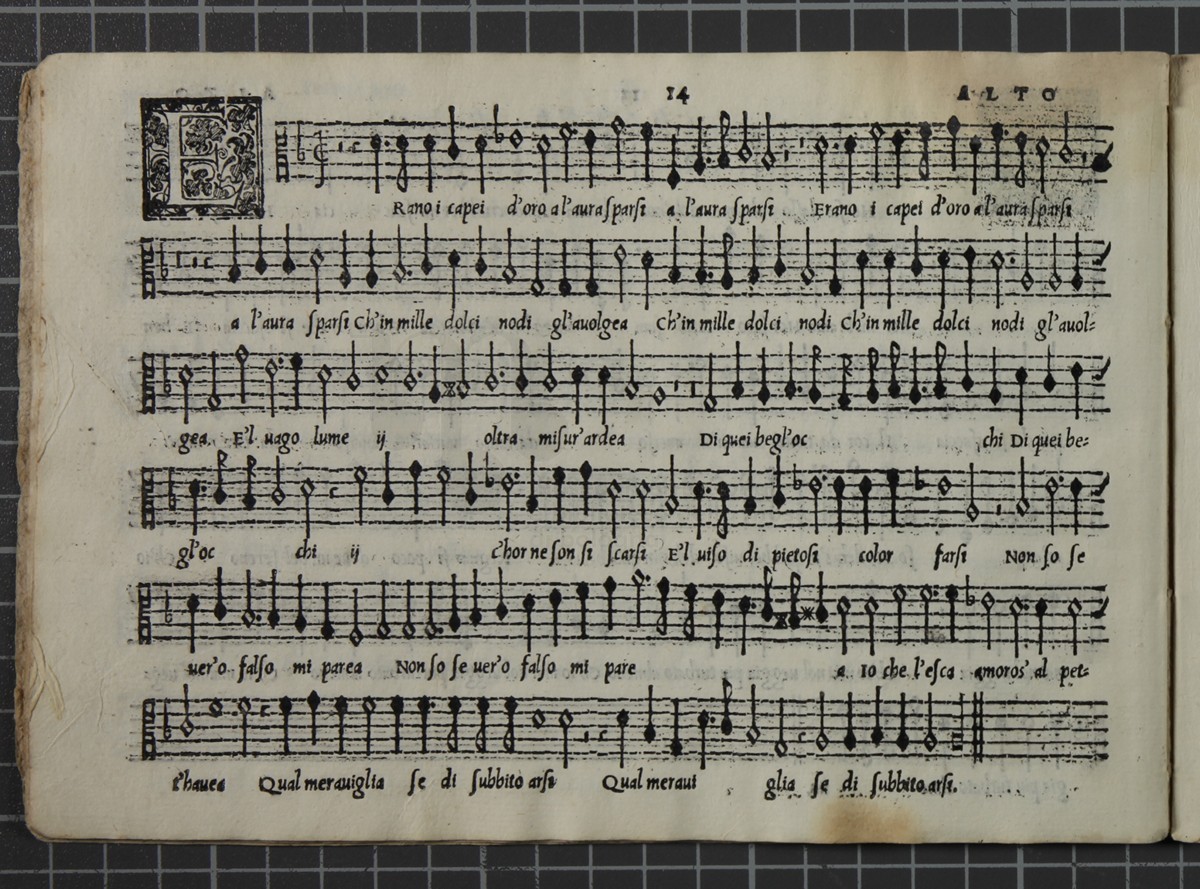 14 ALTO
E Rano i capei d'oro a l'aura sparsi a l'aura sparsi Erano i capei d'oro a l'aura sparsi
a l'aura sparsi Ch'in mille dolci nodi gl'auolgea Ch'in mille dolci nodi Ch'in mille dolci nodi gl'auol=
gea. E'l uago lume ij oltra misur'ardea Di quei begl'oc chi Di quei be=
gl'oc chi ij c'hor ne son si scarsi E'l uiso di pietosi color farsi Non so se
uer'o falso mi parea Non so se uer'o falso mi pare a Io che l'esca amoros'al pet=
t'hauea Qual merauiglia se di subbito arsi Qual meraui glia se di subbito arsi.